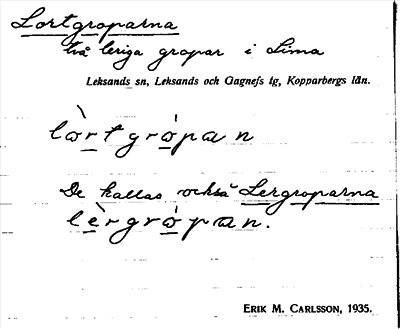 Lortgroparna
två leriga gropar i Lima
Leksands sn, Leksands och Gagnefs tg, Kopparbergs län.
lòrtgrópan
De kallas också Lergroparna
lèrgrópan.
ERIK M. CARLSSON, 1935.